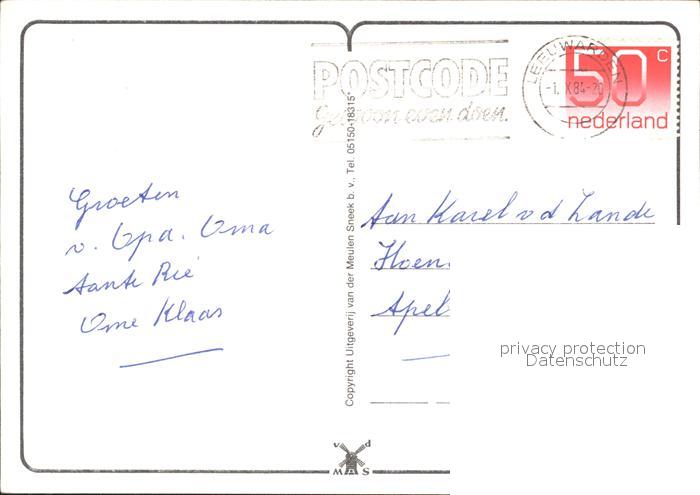 POSTCODE
Gewoon even doen.
LEEUWARDEN
-1. X 84-20
50 c
nederland
Groeten
v. Opa. Oma
tante Rie
Ome Klaas
Copyright Uitgeverij van der Meulen Sneek b. v., Tel. 05150-18315*
Aan Karel v d Zande
Hoen
Apel
privacy protection
Datenschutz
v d
MAS